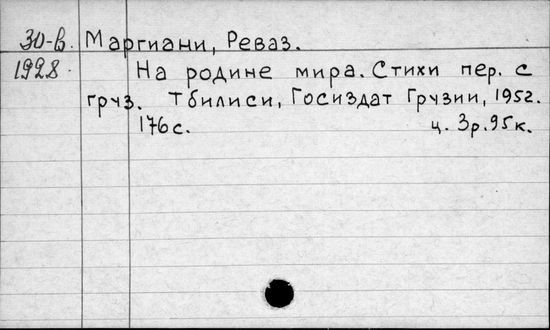 30-в. Маргиани, Реваз.
1928. На родине мира. Стихи пер. с
груз. Тбилиси, Госиздат Грузии, 1952.
176 с. ц. 3р.95к.